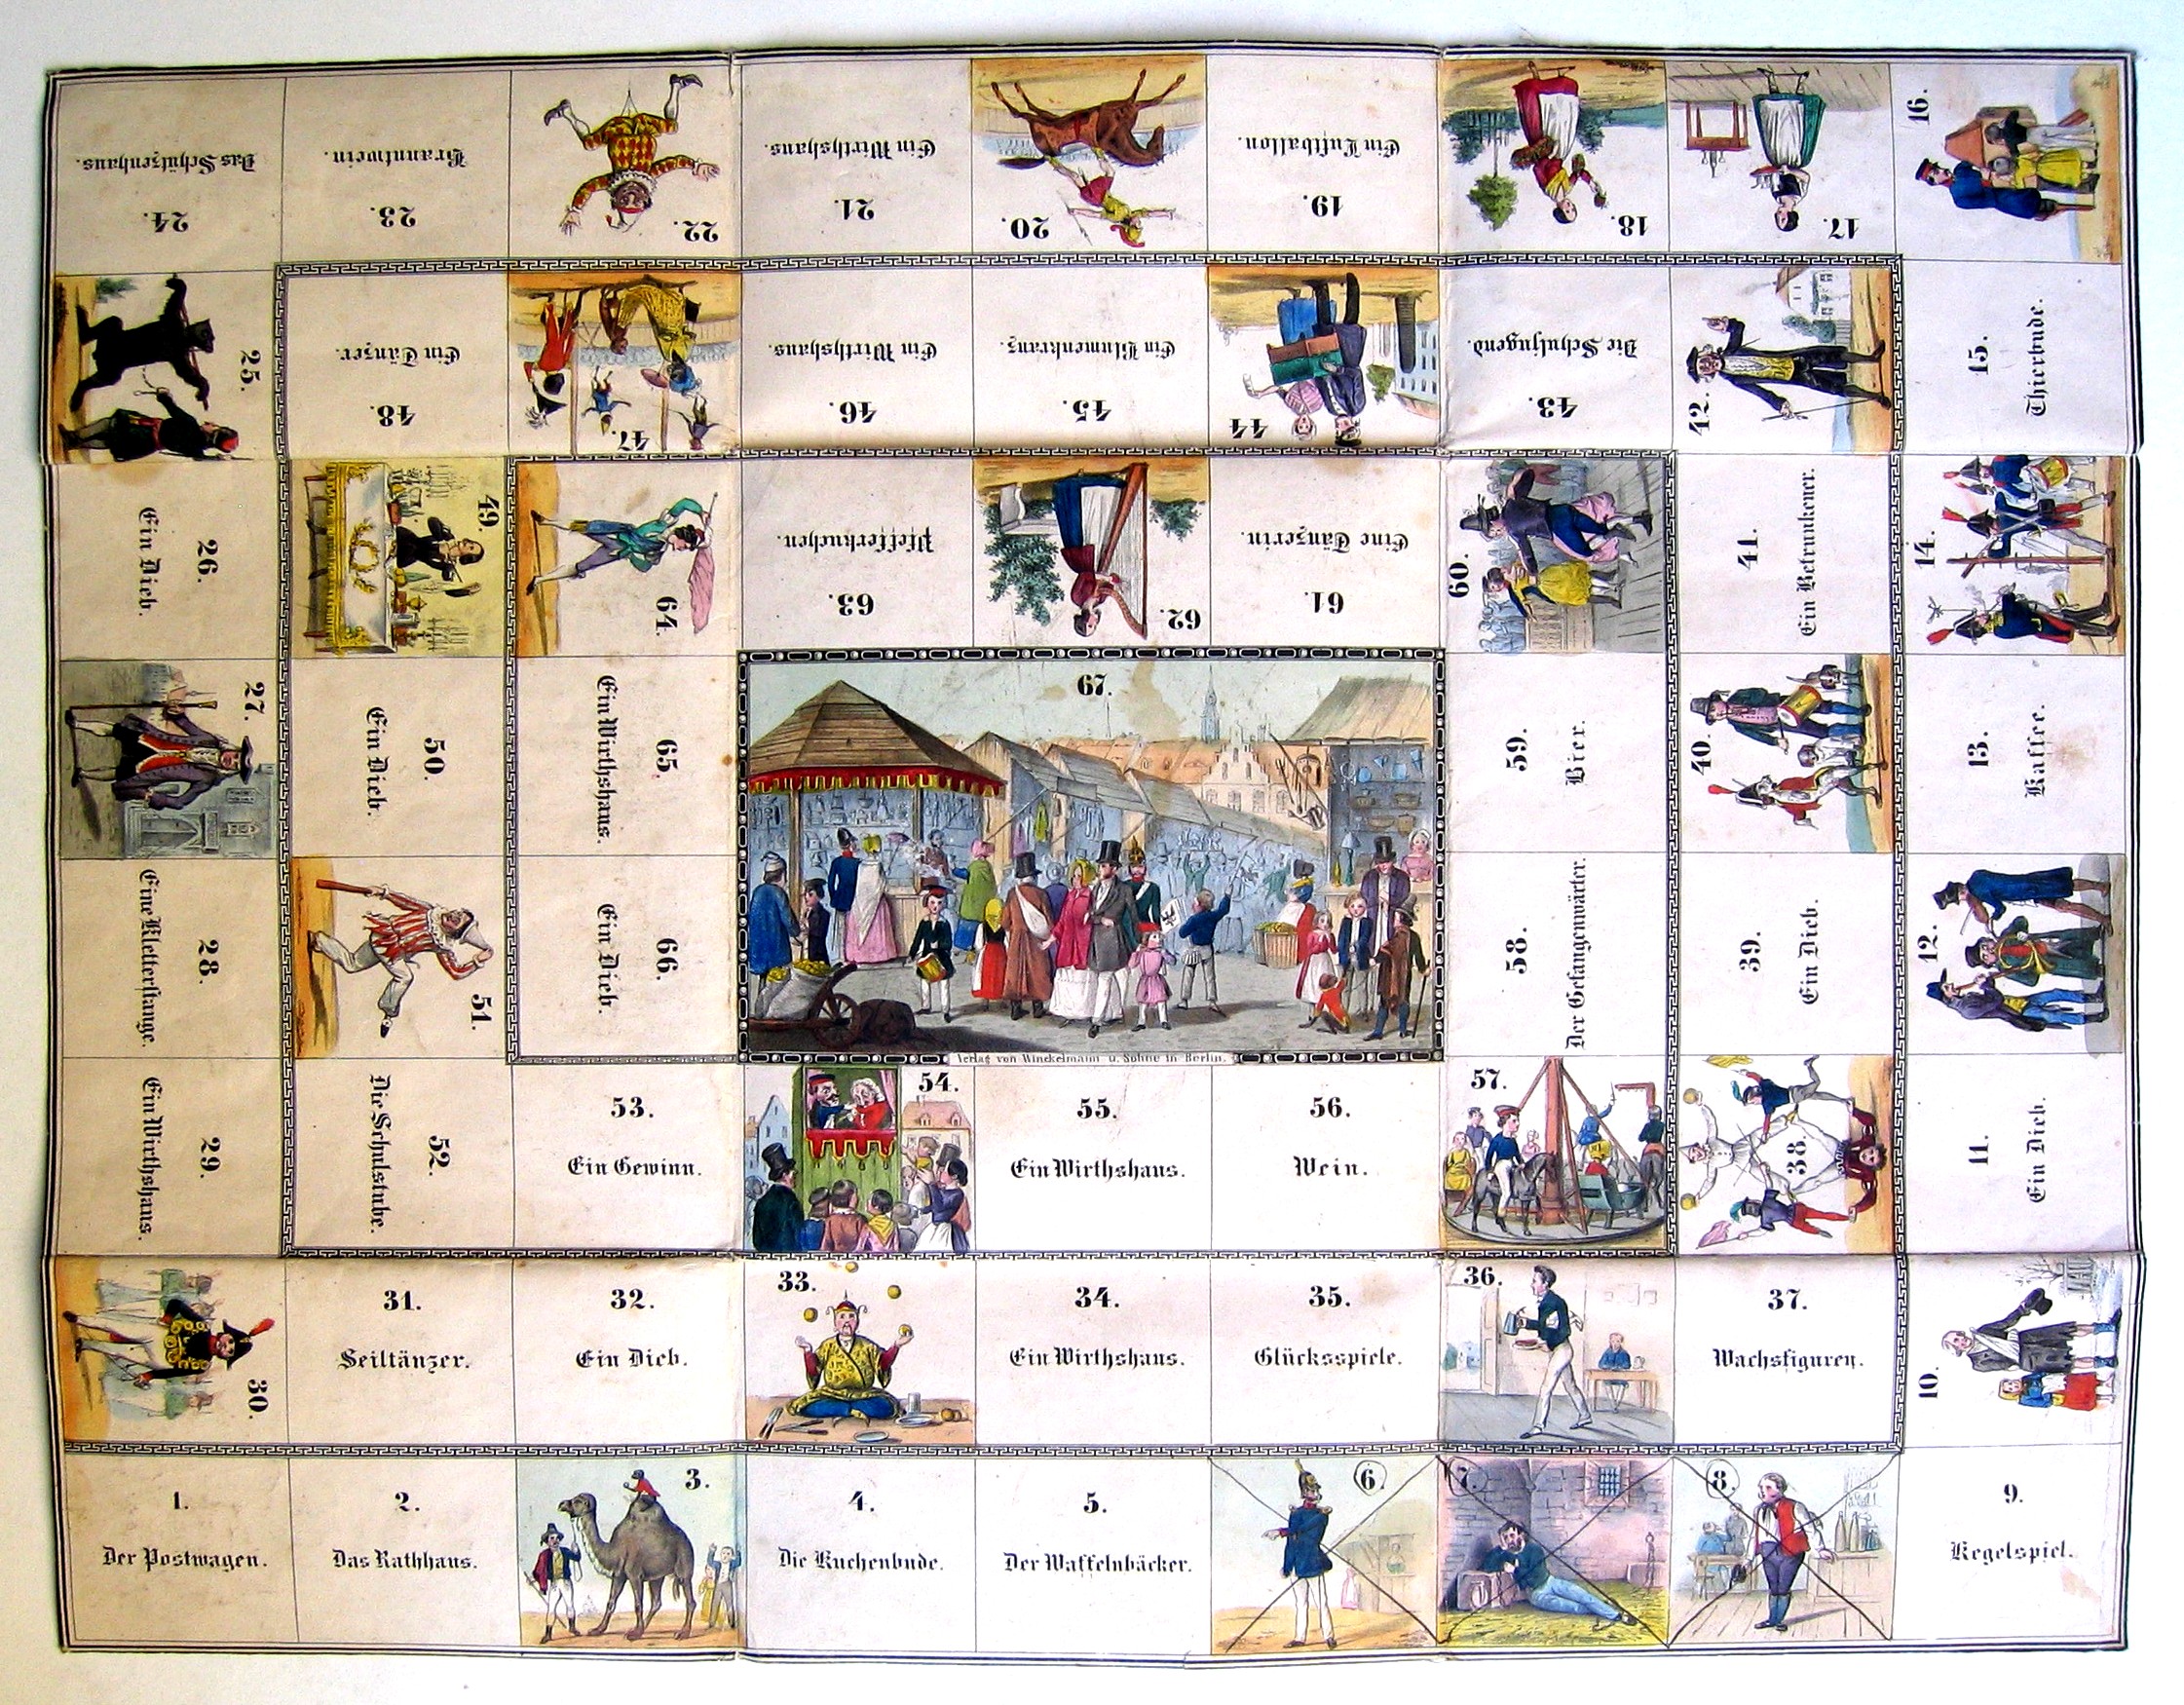 1.
Der Postwagen.
2.
Das Rathhaus.
3.
4.
Die Kuchenbude.
5.
Der Waffelnbäcker.
6.
7.
8.
9.
Kegelspiel.
10.
11.
Ein Dieb.
12.
13.
Kaffee.
14.
15.
Thierbude.
16.
17.
18.
19.
Ein Luftballon.
20.
21.
Ein Wirthshaus.
22.
23.
Branntwein.
24.
Das Schützenhaus.
25.
26.
Ein Dieb.
27.
28.
Eine Kletterstange.
29.
Ein Wirthshaus.
30.
31.
Seiltänzer.
32.
Ein Dieb.
33.
34.
Ein Wirthshaus.
35.
Glücksspiele.
36.
37.
Wachsfiguren.
38.
39.
Ein Dieb.
40.
41.
Ein Betrunkener.
42.
43.
Die Schuljugend.
44
45.
Ein Blumenkranz.
46.
Ein Wirthshaus.
47.
48.
Ein Tänzer.
49.
50.
Ein Dieb.
51.
52.
Die Schulstube.
53.
Ein Gewinn.
54.
55.
Ein Wirthshaus.
56.
Wein.
57.
58.
Der Gefangenwärter.
59.
Bier.
60.
61.
Eine Tänzerin.
62.
63.
Pfefferkuchen.
64.
65.
Ein Wirthshaus.
66.
Ein Dieb.
67.
Verlag von Winckelmann u. Söhne in Berlin.